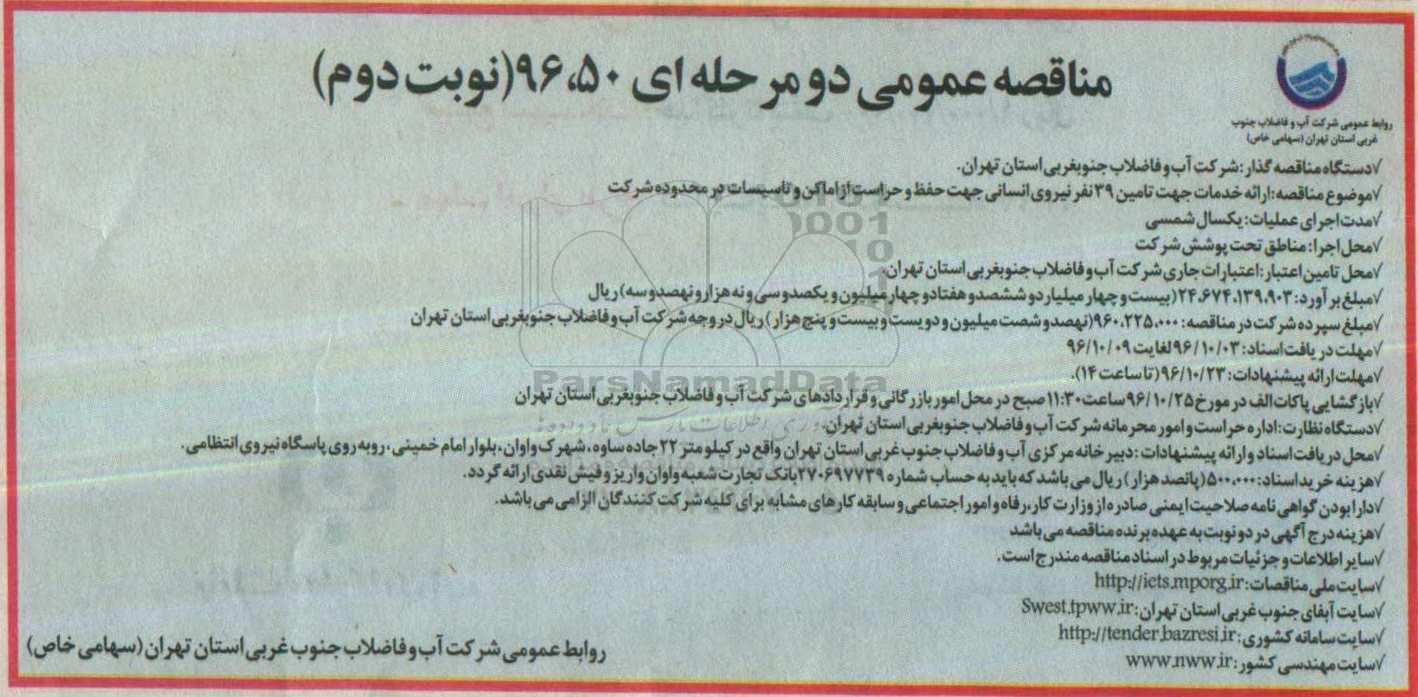 مناقصه عمومی دو مرحله ای ۹۶،۵۰(نوبت دوم)
روابط عمومی شرکت آب و فاضلاب جنوب
غربی استان تهران (سهامی خاص)
√دستگاه مناقصه گذار: شرکت آب و فاضلاب جنوبغربی استان تهران.
√موضوع مناقصه: ارائه خدمات جهت تامین ۳۹ نفر نیروی انسانی جهت حفظ و حراست از اماکن و تاسیسات در محدوده شرکت
√مدت اجرای عملیات: یکسال شمسی
√محل اجرا: مناطق تحت پوشش شرکت
√محل تامین اعتبار: اعتبارات جاری شرکت آب و فاضلاب جنوبغربی استان تهران.
√مبلغ برآورد: ۲۴،۶۷۴،۱۳۹،۹۰۳(بیست و چهار میلیارد و ششصد و هفتاد و چهار میلیون و یکصد و سی و نه هزار و نهصد و سه) ریال
√مبلغ سپرده شرکت در مناقصه: ۹۶۰،۲۲۵،۰۰۰(نهصد و شصت میلیون و دویست و بیست و پنج هزار) ریال در وجه شرکت آب و فاضلاب جنوبغربی استان تهران
√مهلت دریافت اسناد: ۹۶/۱۰/۰۳ لغایت ۹۶/۱۰/۰۹
√مهلت ارائه پیشنهادات: ۹۶/۱۰/۲۳(تا ساعت ۱۴).
√بازگشایی پاکات الف در مورخ ۹۶/۱۰/۲۵ ساعت ۱۱:۳۰ صبح در محل امور بازرگانی و قراردادهای شرکت آب و فاضلاب جنوبغربی استان تهران
√دستگاه نظارت: اداره حراست و امور محرمانه شرکت آب و فاضلاب جنوبغربی استان تهران.
√محل دریافت اسناد و ارائه پیشنهادات: دبیرخانه مرکزی آب و فاضلاب جنوب غربی استان تهران واقع در کیلومتر ۲۲ جاده ساوه، شهرک واوان، بلوار امام خمینی، روبه روی پاسگاه نیروی انتظامی.
√هزینه خرید اسناد: ۵۰۰،۰۰۰(پانصد هزار) ریال می باشد که باید به حساب شماره ۲۷۰۶۹۷۷۳۹ بانک تجارت شعبه واوان واریز و فیش نقدی ارائه گردد.
√دارا بودن گواهی نامه صلاحیت ایمنی صادره از وزارت کار، رفاه و امور اجتماعی و سابقه کارهای مشابه برای کلیه شرکت کنندگان الزامی می باشد.
√هزینه درج آگهی در دو نوبت به عهده برنده مناقصه می باشد
√سایر اطلاعات و جزئیات مربوط در اسناد مناقصه مندرج است.
√سایت ملی مناقصات: http://iets.mporg.ir
√سایت آبفای جنوب غربی استان تهران: Swest.tpww.ir
√سایت سامانه کشوری: http://tender.bazresi.ir
√سایت مهندسی کشور: www.nww.ir
روابط عمومی شرکت آب و فاضلاب جنوب غربی استان تهران (سهامی خاص)
ParsNamadData